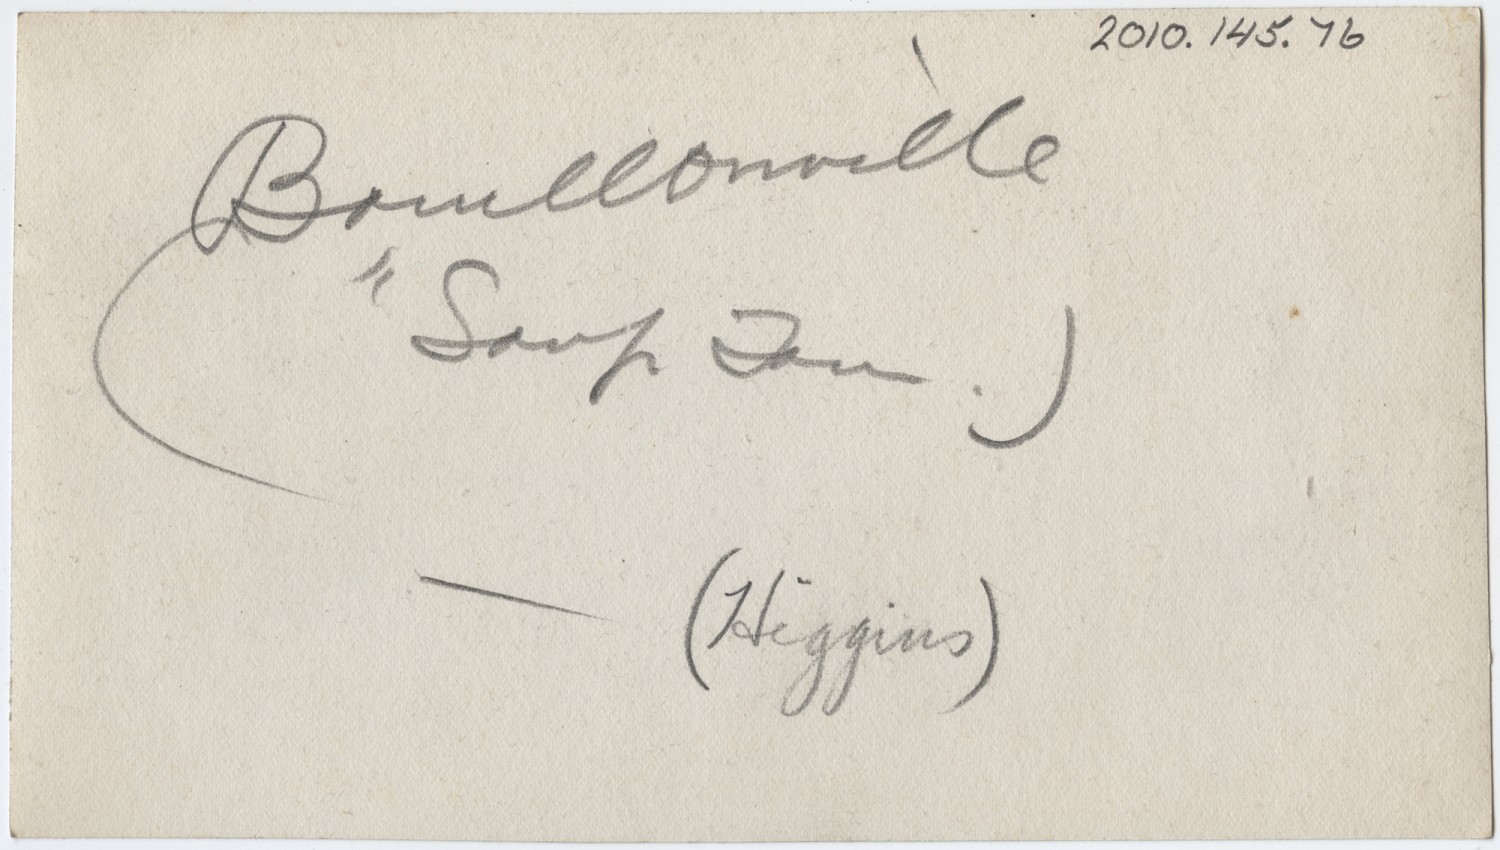 2010.145.76
Bouillonville
"Soup Town.)
(Higgins)